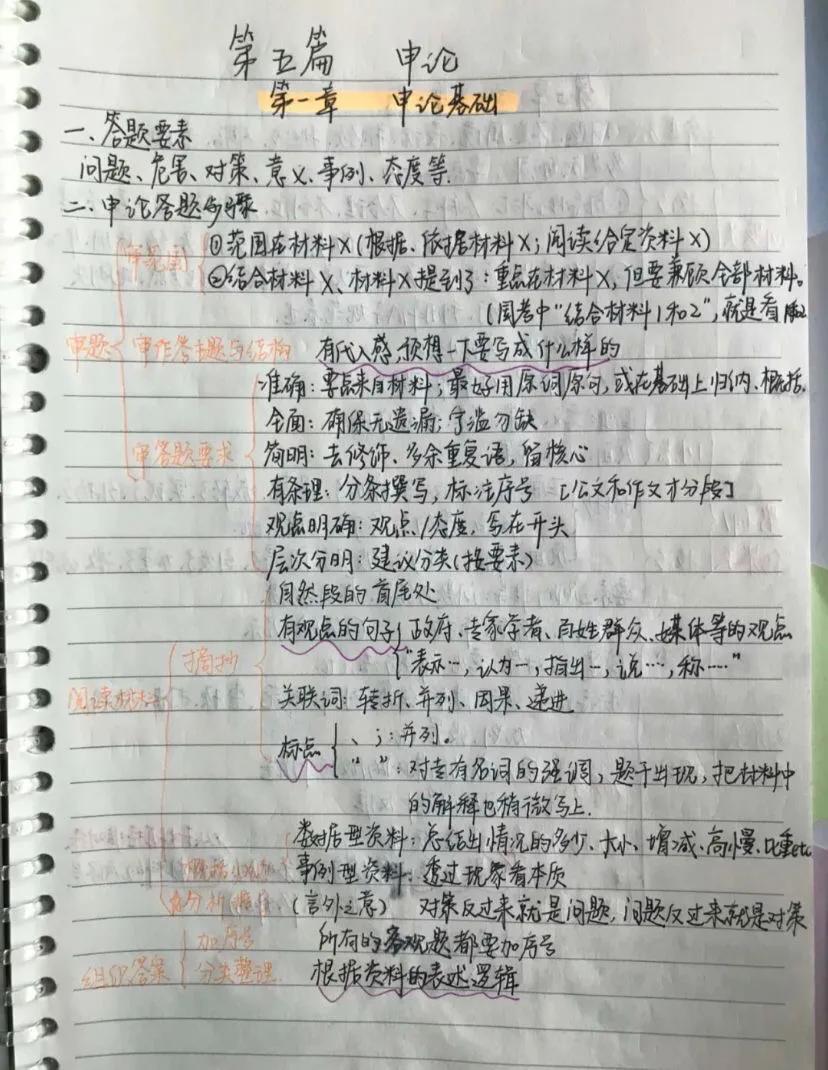 第五篇 申论
第一章 申论基础
一、答题要素
问题、危害、对策、意义、事例、态度等.
二、申论答题步骤
审范围 ①范围在材料X(根据、依据材料X;阅读给定资料X)
②结合材料X、材料X提到了:重点在材料X,但要兼顾全部材料。
(国考中"结合材料1和2",就是看1和2
审题 审作答主题与结构 有代入感,预想一下要写成什么样的
准确:要点来自材料;最好用原词原句,或在基础上归纳、概括.
全面:确保无遗漏;宁滥勿缺
审答题要求 简明:去修饰、多余重复语,留核心
有条理:分条撰写,标注序号 [公文和作文才分段]
观点明确:观点/态度,写在开头
层次分明:建议分类(按要素)
自然段的首尾处
有观点的句子 政府、专家学者、百姓群众、媒体等的观点
摘抄 "表示…,认为…,指出…,说…,称……"
阅读材料 关联词:转折、并列、因果、递进
标点 、;:并列。
" ":对专有名词的强调,题干出现,把材料中
的解释也稍微写上.
数据型资料:总结出情况的多少、大小、增减、高慢、比重etc
事例型资料:透过现象看本质
分析推 (言外之意) 对策反过来就是问题,问题反过来就是对策
加序号 所有的客观题都要加序号
组织答案 分类整理 根据资料的表述逻辑